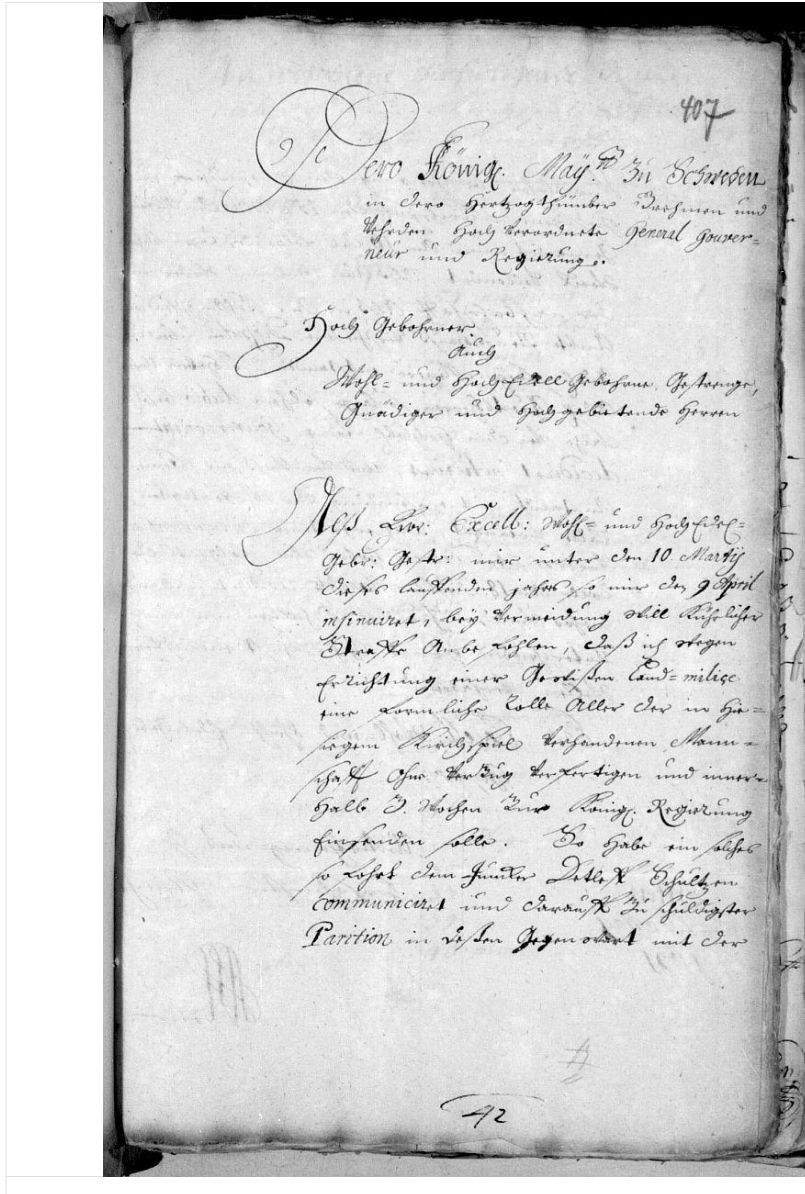 407
Dero Königl. May.tt Zu Schweden
in dero Hertzogthümber Brehmen und
Vehrden Hoch Verordnete General Gouver=
neur und Regierung.
Hoch Gebohrner.
Auch
Wohl= und Hoch Edell Gebohrne, Gestrenge,
Gnädiger und Hochgebietende Herren
Alß Ewr: Excell: Wohl= und HochEdel=
Gebr: Gestr: mir unter den 10 Martij
dieses lauffenden jahrs so mir den 9 April
insinuiret, bey Vermeidung Will Kührlicher
Straffe Anbefohlen, daß ich wegen
Errichtung einer Gewißen Land=milice
eine formliche Rolle Aller der in Hie=
siegem Kirchspiel Verhandenen Mann=
schafft ohne Verzug Verfertigen und inner=
halb 3. Wochen Zur Königl. Regierung
Einsenden solle. So habe ein solches
so fohrt dem Juncker Detleff Schultzen
communiciret und darauff Zu schuldigster
Parition in deßen Gegenwart mit der
42